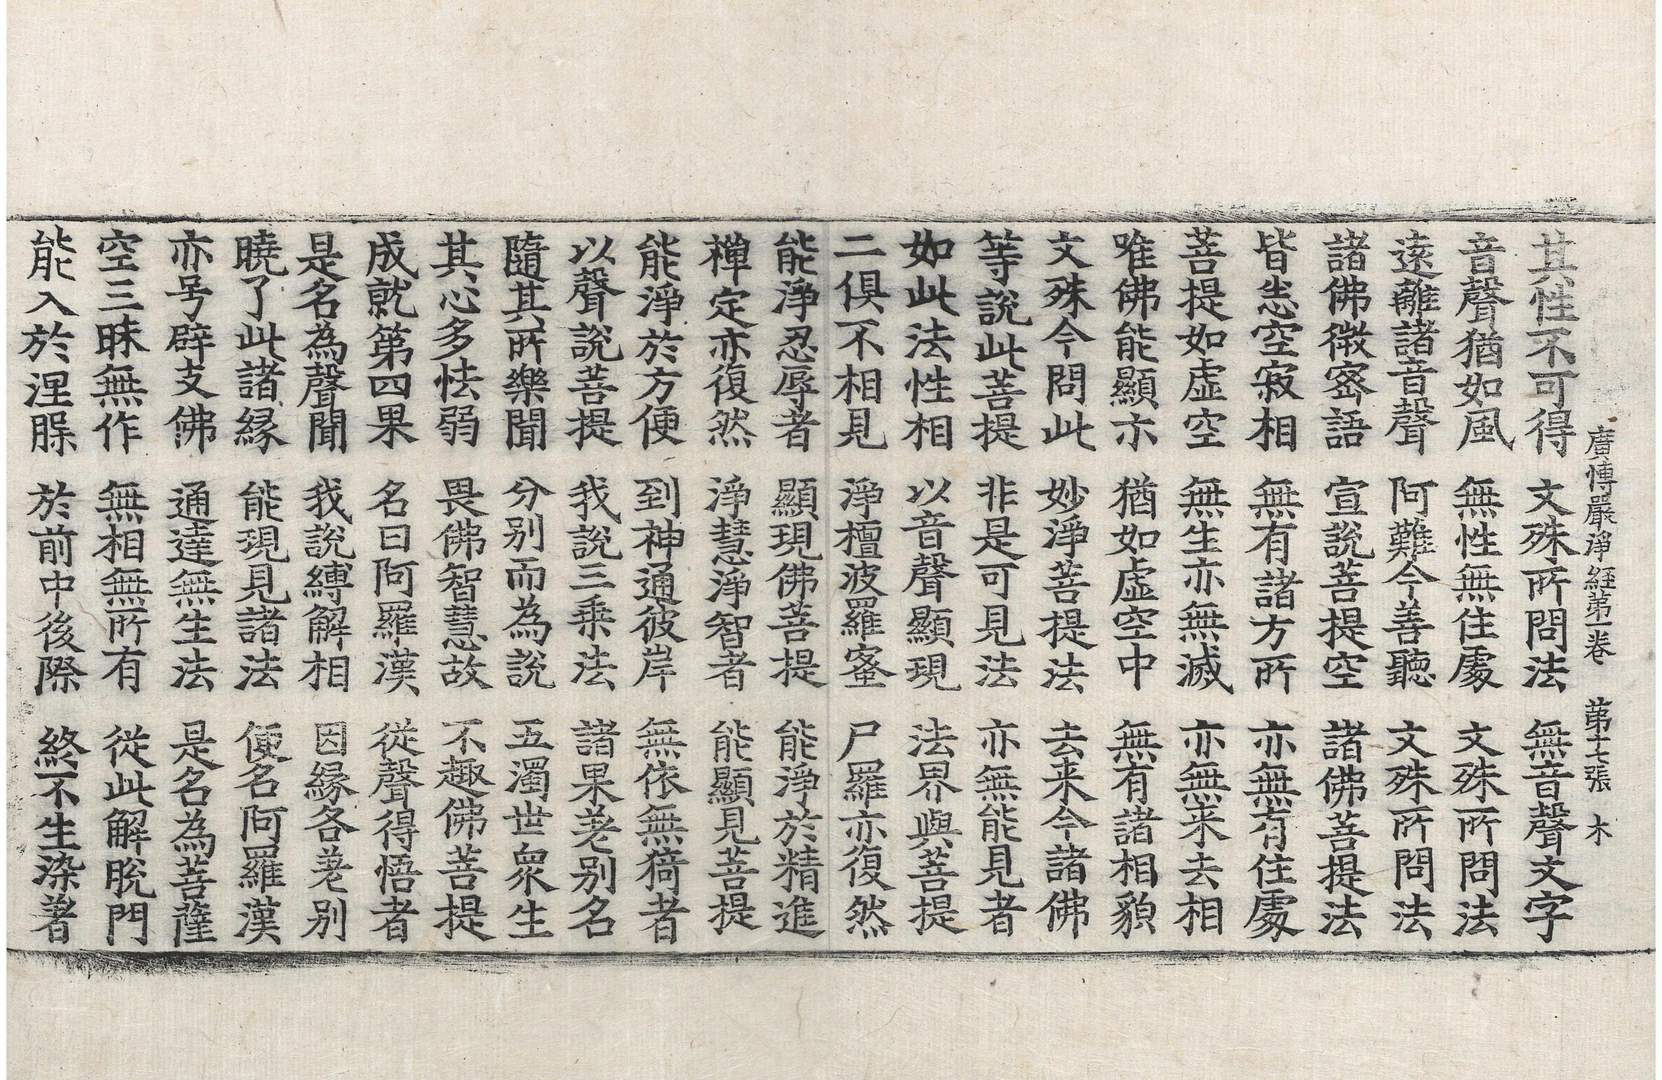 廣博嚴淨經第一卷 第十七張 木
其性不可得 文殊所問法 無音聲文字
音聲猶如風 無性無住處 文殊所問法
遠離諸音聲 阿難今善聽 文殊所問法
諸佛微密語 宣說菩提空 諸佛菩提法
皆悉空寂相 無有諸方所 亦無有住處
菩提如虛空 無生亦無滅 亦無来去相
唯佛能顯示 猶如虛空中 無有諸相貌
文殊今問此 妙淨菩提法 去来今諸佛
等說此菩提 非是可見法 亦無能見者
如此法性相 以音聲顯現 法界與菩提
二俱不相見 淨檀波羅蜜 尸羅亦復然
能淨忍辱者 顯現佛菩提 能淨於精進
禪定亦復然 淨慧淨智者 能顯見菩提
能淨於方便 到神通彼岸 無依無猗者
以聲說菩提 我說三乘法 諸果差别名
隨其所樂聞 分别而為說 五濁世衆生
其心多怯弱 畏佛智慧故 不趣佛菩提
成就第四果 名曰阿羅漢 從聲得悟者
是名為聲聞 我說縛解相 因緣各差别
曉了此諸緣 能現見諸法 便名阿羅漢
亦号辟支佛 通達無生法 是名為菩薩
空三昧無作 無相無所有 從此解脫門
能入於涅槃 於前中後際 終不生染著